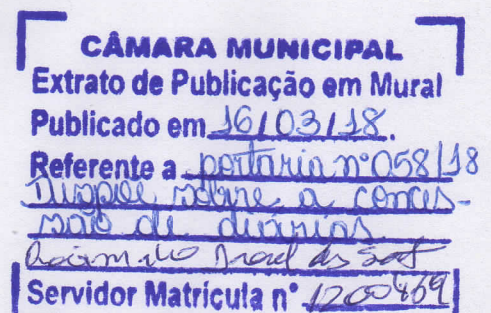 CÂMARA MUNICIPAL
Extrato de Publicação em Mural
Publicado em 16/03/18.
Referente a portaria nº 058/18
Dispõe sobre a conces-
são de diárias
Servidor Matrícula nº 1200469